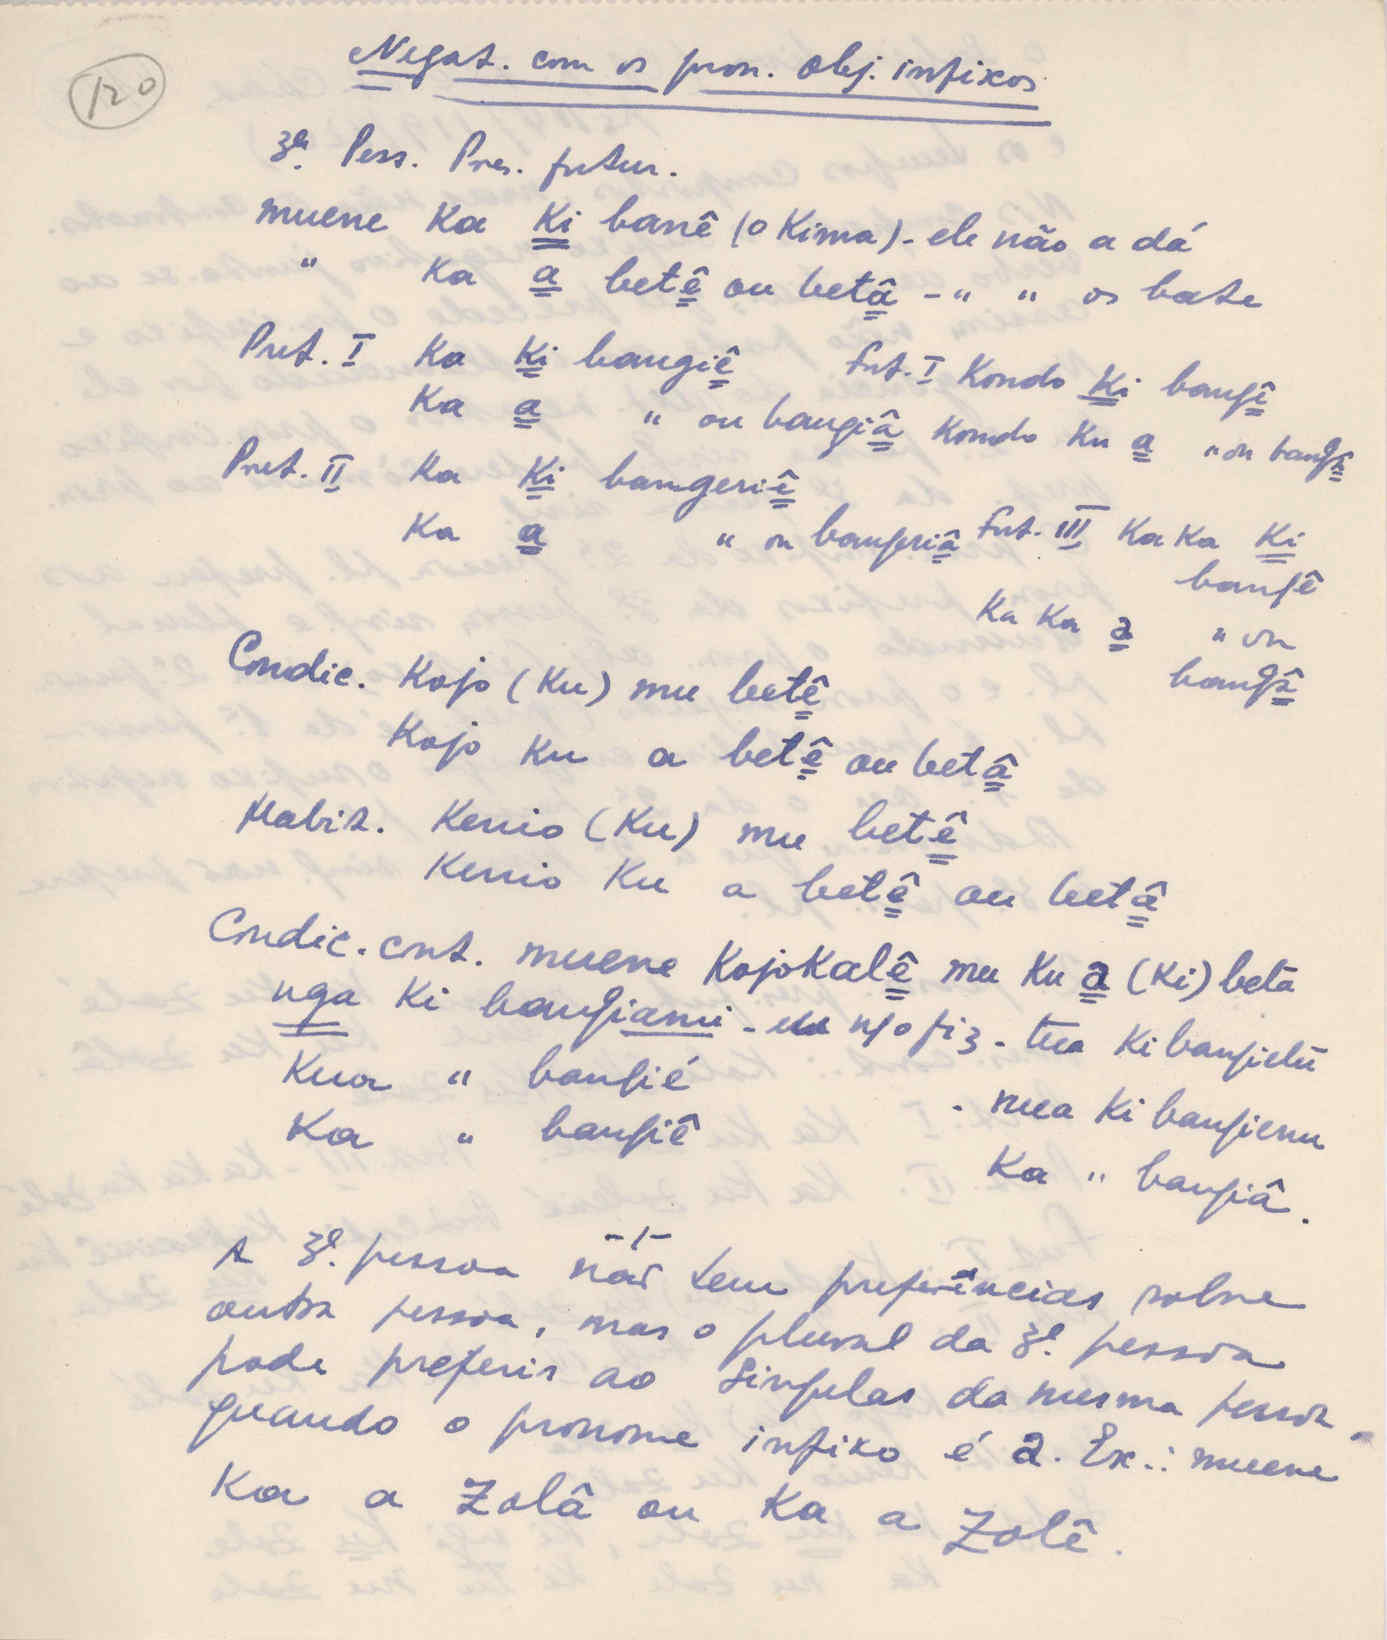 120
Negat. com os pron. obj. infixos
3ª. Pess. Pres. futur.
muene Ka Ki banê (o Kima) - ele não a dá
" Ka a betê ou betâ - " " os bate
Pret. I Ka Ki bangiê Fut. I Kondo Ki bangê
Ka a " ou bangiâ Kondo Ku a " ou bangâ
Pret. II Ka Ki bangeriê
Ka a " ou bangeriâ Fut. III Ka Ka Ki
bangê
Ka Ka a " ou
bangâ
Condic. Kojo (Ku) mu betê
Kojo Ku a betê ou betâ
Habit. Kenio (Ku) mu betê
Kenio Ku a betê ou betâ
Condic. cont. muene KojoKalê mu Ku a (Ki) beta
nga Ki bangiami - n/o fiz - tua Ki bangietu
Kua " bangié
- mua Ki bangienu
Ka " bangiê
Ka " bangiâ.
-/-
A 3ª. pessoa não tem preferências sobre
outra pessoa, mas o plural da 3ª. pessoa
pode preferir ao singular da mesma pessoa
quando o pronome infixo é a. Ex.: muene
Ka a Zolâ ou Ka a Zolê.